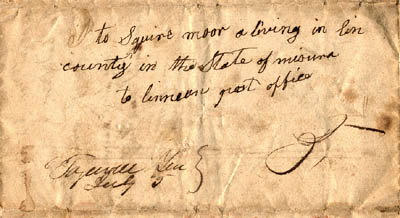 to Squire moor a living in lin
county in the State of misura
to linnean post office
Tazewell
July 5
5